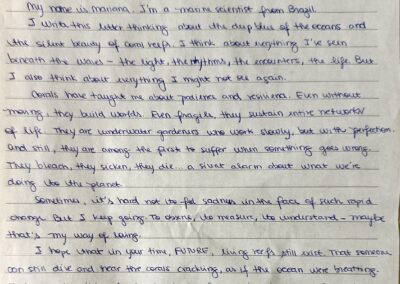 My name is Mariana. I'm a marine scientist from Brazil.
I write this letter thinking about the deep blue of the oceans and
the silent beauty of coral reefs. I think about everything I've seen
beneath the waves – the light, the rhythms, the encounters, the life. But
I also think about everything I might not see again.
Corals have taught me about patience and resilience. Even without
moving, they build worlds. Even fragile, they sustain entire networks
of life. They are underwater gardeners who work slowly, but with perfection.
And still, they are among the first to suffer when something goes wrong.
They bleach, they sicken, they die... a silent alarm about what we're
doing to the planet.
Sometimes, it's hard not to feel sadness in the face of such rapid
change. But I keep going. To observe, to measure, to understand – maybe
that's my way of loving.
I hope that in your time, FUTURE, living reefs still exist. That someone
can still dive and hear the corals cracking, as if the ocean were breathing.